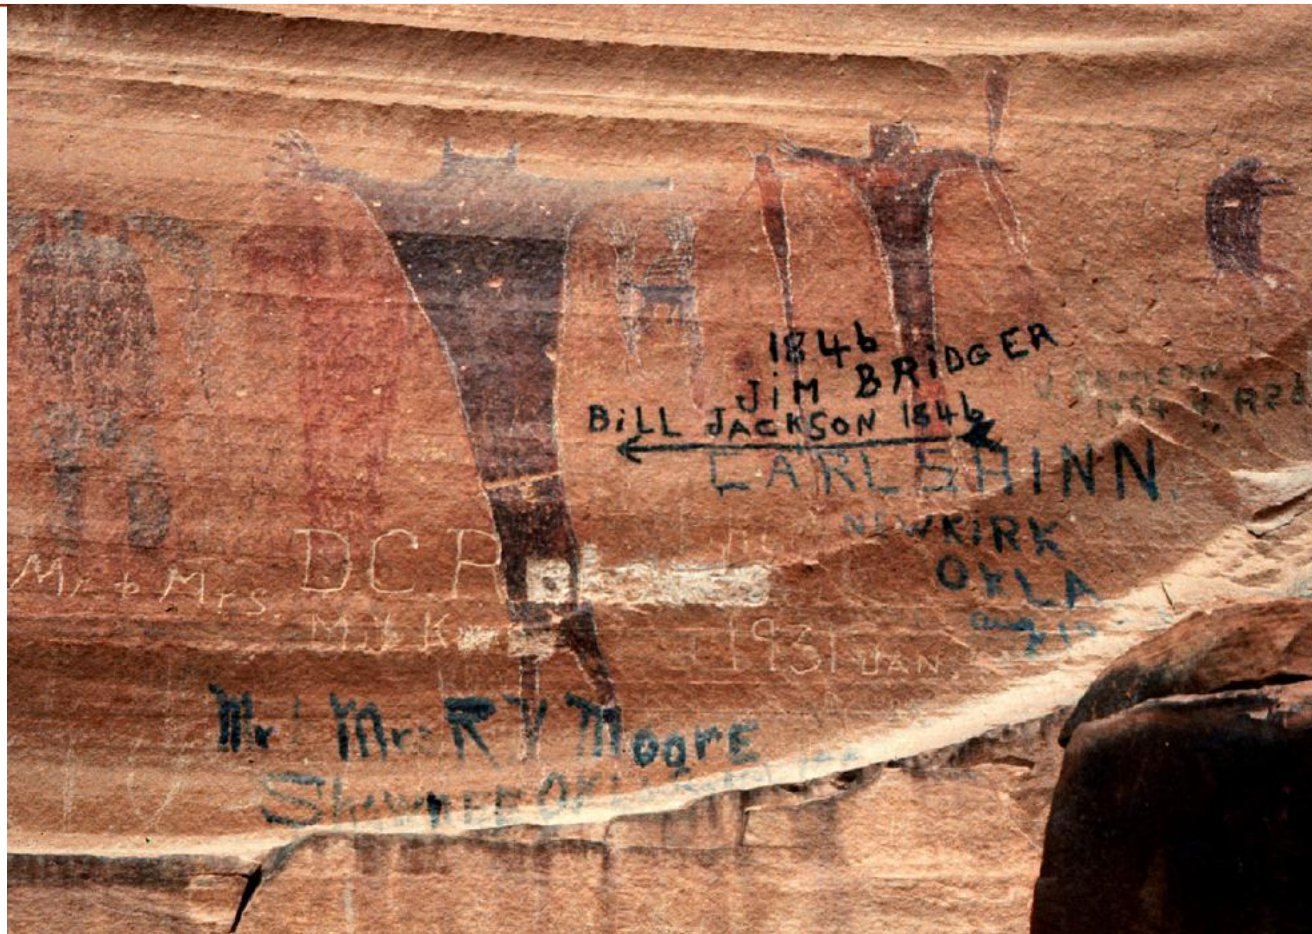 1846
JIM BRIDGER
BiLL JACKSON 1846
CARL SHINN.
NEWKIRK
OKLA
aug
D.C.P.
Mr & Mrs
1931 JAN.
Mr. Mrs R V Moore
Shawnee OKLA